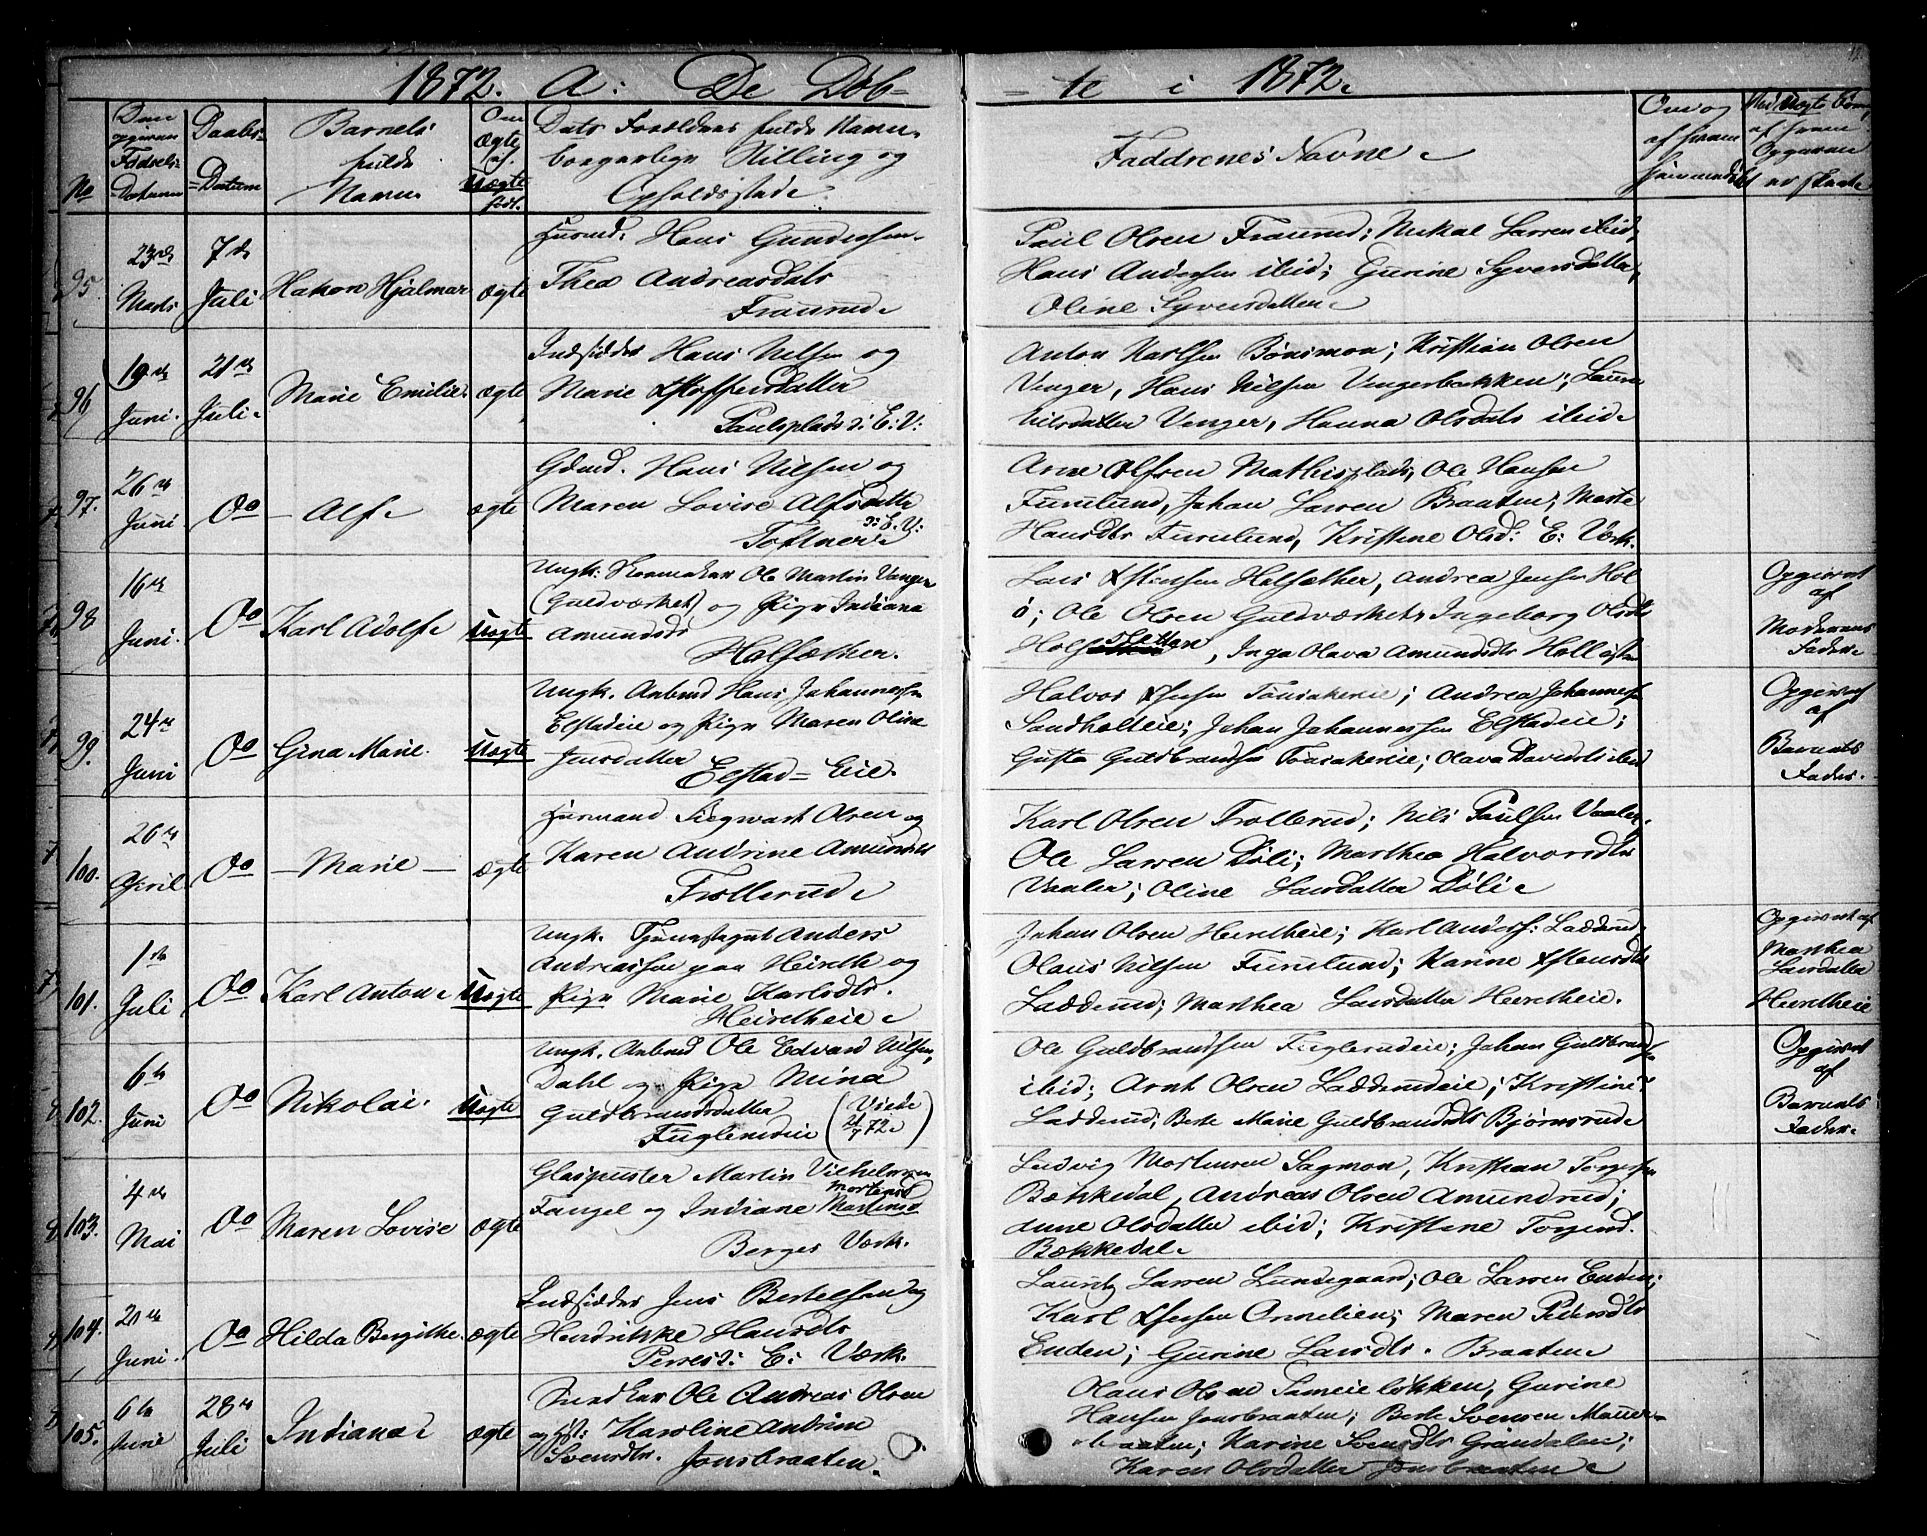 1872. A: De Døb- -te i 1872.
No
Den opgivne Fødsels-Datum
Daabs-Datum
Barnets fulde Navn.
Om Ægte el. Uægte født.
Dets Forældres fulde Navn, borgerlige Stilling og Opholdsstad.
Faddrenes Navne
Om og af hvem hjemmedøbt
Ved Uægte Børn, af hvem Opgaven er skeet.
95.
23de Marts
7de Juli
Hakon Hjalmar
ægte
Husmd. Hans Gundersen.
Thea Andreasdatr
Fraurud.
Paul Olsen Fraurud; Mikal Larsen ibid,
Hans Andersen ibid; Gurine Syversdatter,
Oline Syversdatter.
96
19de Juni.
21de Juli.
Marie Emilie.
ægte
Indsidder Hans Nilsen og
Marie Stoffersdatter
Paulsplads i: E: V:
Anton Karlsen Bønsmoa; Kristian Olsen
Venger, Hans Nilsen Vengerbakken; Laura
Nilsdatter Venger, Hanna Olsdatr ibid.
97.
26de Juni
Do
Alf.
ægte
Gdmd. Hans Nilsen og
Maren Lovise Alfsdatter
Toftner i: E. V:
Arne Olsen Mathisplads, Ole Hansen
Furulund, Johan Larsen Braaten; Marte
Hansdtr Furulund, Kristine Olsd: E: Værk.
98
16de Juni.
Do
Karl Adolf.
Uægte
Ungk: Skomaker Ole Martin Venger
(Guldværket) og Pige Indiana
Amundsdtr
Holsæther.
Lars Stensen Holsæther, Andrea Jensen Hol
ø; Ole Olsen Guldværket, Ingeborg Olsdtr
Holsæther, Inga Olava Amundsdtr
Opgivet af Moderens Fader.
99.
24de Juni
Do
Gina Marie.
Uægte
Ungk. Arbmd Hans Johannessen
Elstadeie og Pige Maren Oline
Jensdatter
Elstad-Eie.
Halvor Jensen Tonsakereie; Andrea Johannesen
Sandholteie; Johan Johannessen Elstadeie;
Gusta Guldbrandsen Tonsakereie; Olava Davidsdtr ibid
Opgivet af Barnets Fader.
100.
26de April
Do
Marie
ægte
Husmand Siegwart Olsen og
Karen Andrine Amundsdtr
Trollerud.
Karl Olsen Trollerud; Nils Paulsen Vaaler,
Ole Larsen Døli; Marthea Halvorsdtr
Vaaler; Oline Larsdatter Døli.
101.
1ste Juli
Do
Karl Anton.
Uægte
Ungk. Tjenestegut Anders
Andreassen paa Heireth og
Pige Marie Karlsdtr.
Heiretheie.
Johan Olsen Heiretheie; Karl Anders: Ladderud,
Olaus Nilsen Furulund; Karine Stensdtr
Ladderud; Marthea Larsdatter Heiretheie.
Opgivet af Marthea Larsdatter Heiretheie
102.
6te Juni
Do
Nikolai.
Uægte
Ungk. Arbmd Ole Edvard Nilsen
Dahl og Pige Nina
Guldbrandsdatter
Fuglerudeie (Viede 21/7 72.)
Ole Guldbrandsen Fuglerudeie; Johan Guldbrandsen
ibid; Arnt Olsen Ladderudeie; Kristine
Ladderud; Berte Marie Guldbrandsdtr Bjørnsrud.
Opgivet af Barnets Fader.
103.
4de Mai
Do
Maren Lovise
ægte
Glaspuster Martin Vilhelmsen
Fangel og Indiane Martinsd Mortensd
Berger Værk.
Ludvig Mortensen Sagmoa, Kristian Torgersen
Bækkedal, Andreas Olsen Amundrud;
Anne Olsdatter ibid; Kristine Torgersd.
Bækkedal.
104.
21de Juni.
Do
Hilda Bergithe.
ægte
Indsidder Jens Bertelsen og
Hendrikke Hansdtr
i: E: Værk.
Lauritz Larsen Lundegaard; Ole Larsen Enden;
Karl Jensen Ornelien; Maren Pedersdtr
Enden; Gurine Larsdtr. Braaten.
105.
6te Juni
28de Juli
Indiana
ægte
Snedker Ole Andreas Olsen
og H: Karoline Antrine
Svensdtr. Jonsbraaten.
Olaus Olsen Sameieløkken, Gurine
Hansen Jonsbraaten; Berte Svensen Maurer-
braaten; Karine Svensdtr Grøndalen;
Karen Olsdatter Jonsbraaten.